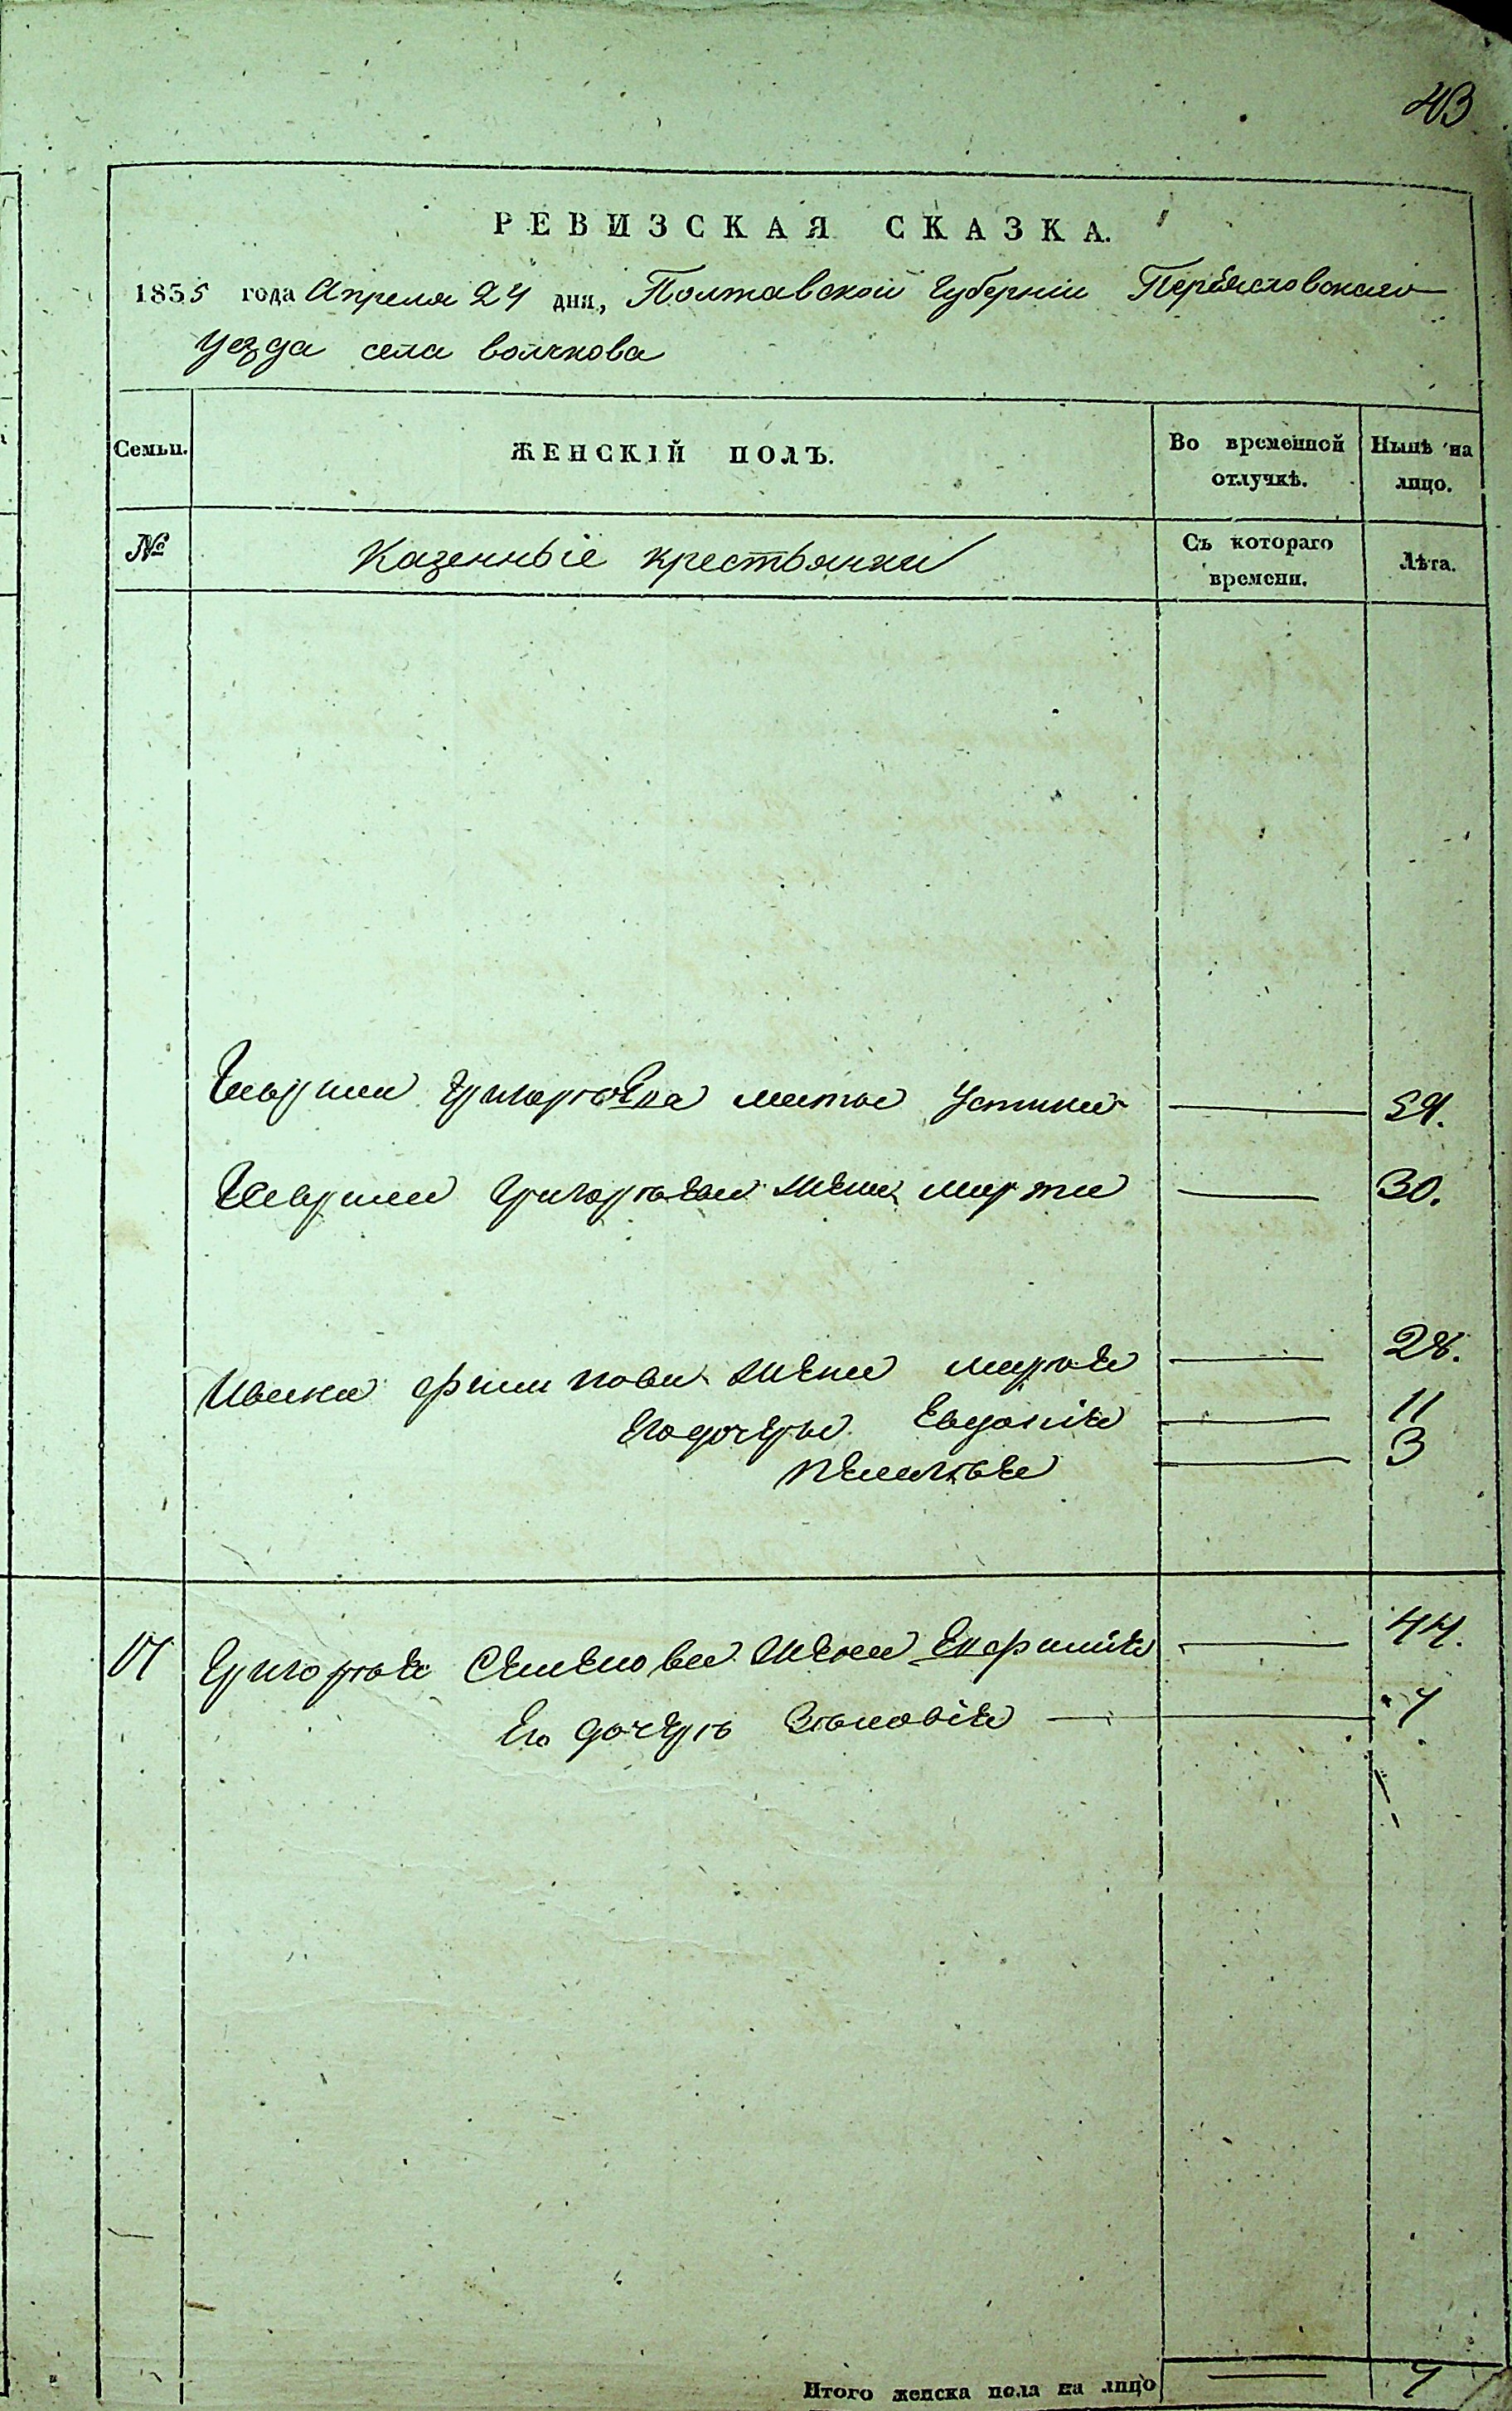 43
РЕВИЗСКАЯ СКАЗКА.
1835 года Апреля 24 дня, Полтавской Губернии Переясловского
уезда села волчкова
Семьи. ЖЕНСКІЙ ПОЛЪ. Во временной отлучкѣ. Нынѣ на лицо.
№ Казенныіе крестьянки Съ котораго времени. Лѣта.
Григорьева мать Устинья 59.
Григорьева жена марта 30.
Ивана Филипова жена марья 28.
Его дочеры Евдокія 11
Пелагея 3
17 Григорья Семенова жена Ефимія 44.
Его дочерь Зѣновія 7
Итого женска пола на лицо 7